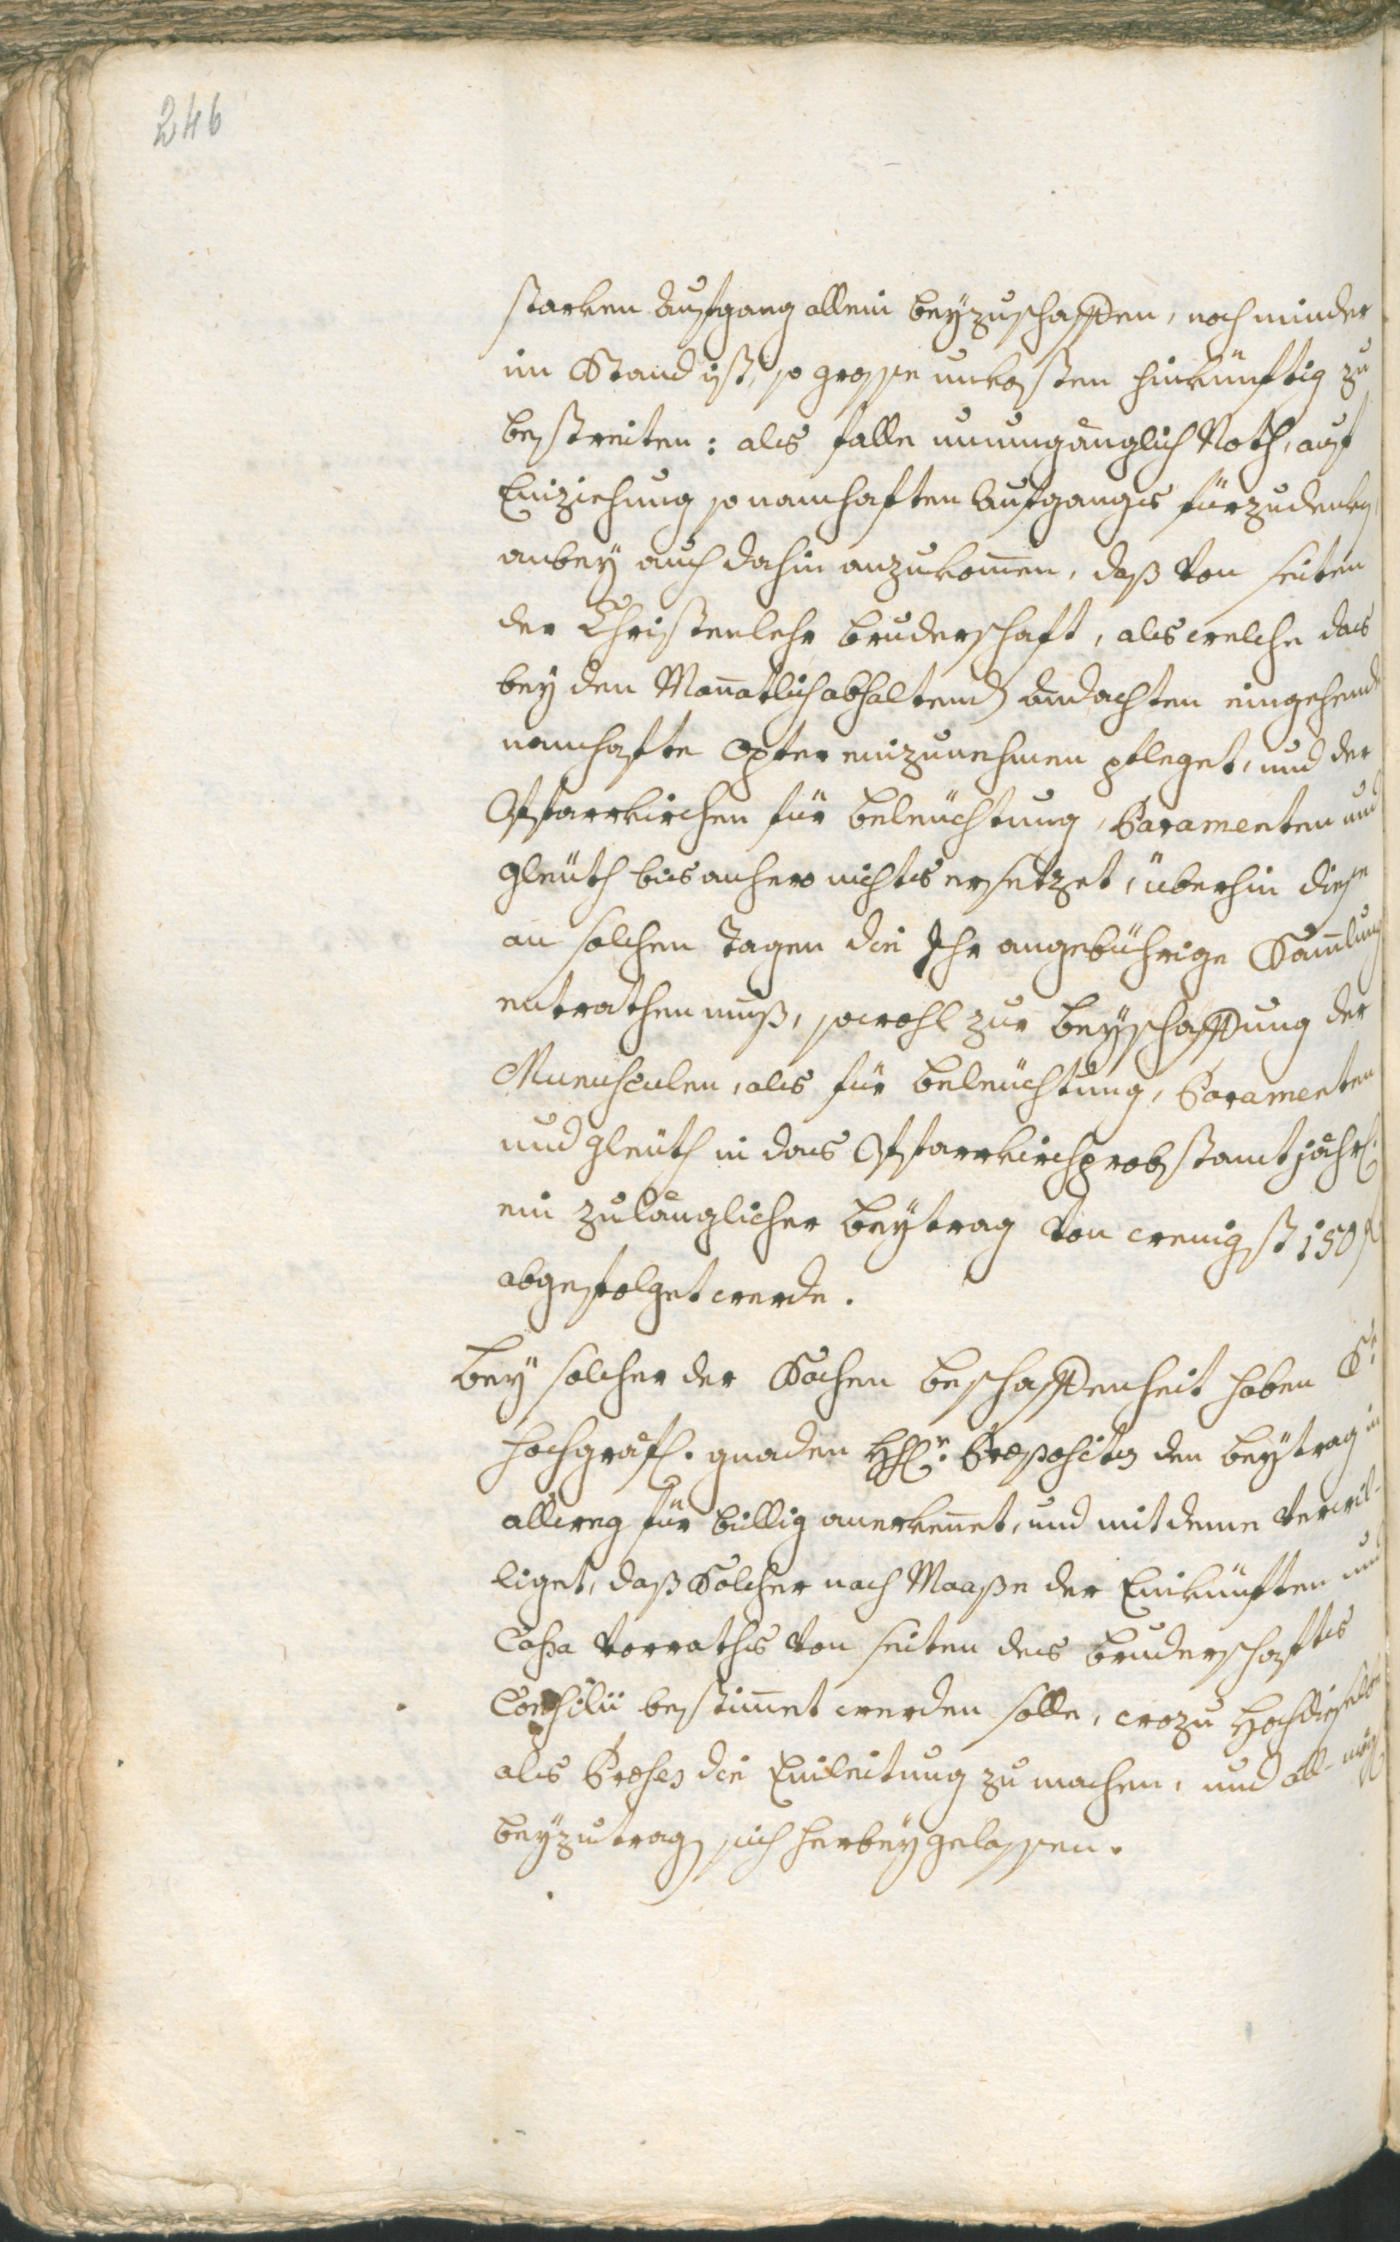 246
starken Ausgang allein beyzuschaffen, noch minder
im Stand ist, so grosse unkosten hinkünftig zu
bestreiten: als falle unumgänglich Noth, auf
Einziehung so namhaften Ausgangs fürzudenken,
anbey auch dahin anzukom̄en, daß von seiten
der Christenlehr bruderschaft, als welche das
bey den Mon̄atlich abhaltend andachten eingehende
namhafte Opfer einzunehmen pfleget, und der
Pfarrkirchen für beleuchtung, Paramenten und
gleuth bis anhero nichts ersetzet, überhin diese
an solchen Tagen die Ihr angebührige Sam̄lung
entrathen muß, sowohl zur beyschaffung der
Munusculen, als für beleuchtung, Paramenten
und gleuth in das Pfarrkirchprobstamt jährl.
ein zulänglicher beytrag von wenigst 150 f
abgefolget werde.
Bey solcher der Sachen beschaffenheit haben Se
hochgräfl. gnaden HH. Præpositus den beytrag in
allweg für billig anerken̄et, und mit deme verwil-
liget, daß Solcher nach Maaße der Einkünften und
Cassa vorraths von seiten des bruderschafts
Consilii bestim̄et werden solle, wozu Hochdieselbe
als Præses die Einleitung zu machen, und all-mögl
beyzutragen sich herbeygelassen.